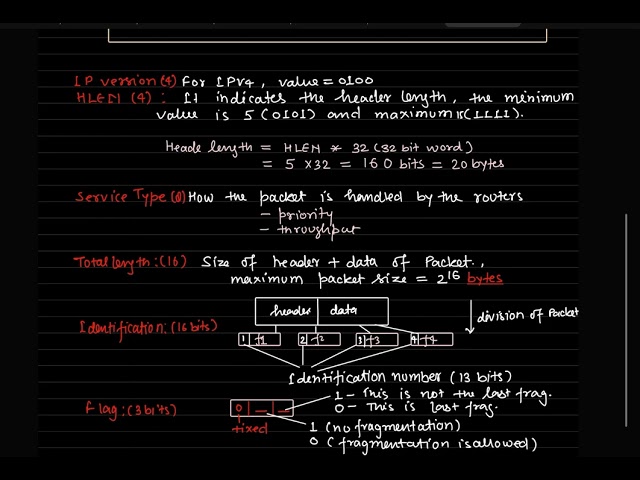 IP version(4) For IPv4, value = 0100
HLEN (4): It indicates the header length, the minimum
value is 5 (0101) and maximum 15(1111).
Heade length = HLEN * 32 (32 bit word)
= 5 x 32 = 160 bits = 20 bytes
Service Type(8) How the packet is handled by the routers
- priority
- throughput
Total length:(16) Size of header + data of Packet.,
maximum packet size = 2^16 bytes
header data
division of Packet
Identification:(16 bits) 1 f1 2 f2 3 f3 4 f4
Identification number (13 bits)
1 - This is not the last frag.
Flag:(3 bits) 0 0 - This is last frag.
fixed
1 (no fragmentation)
0 (fragmentation is allowed)